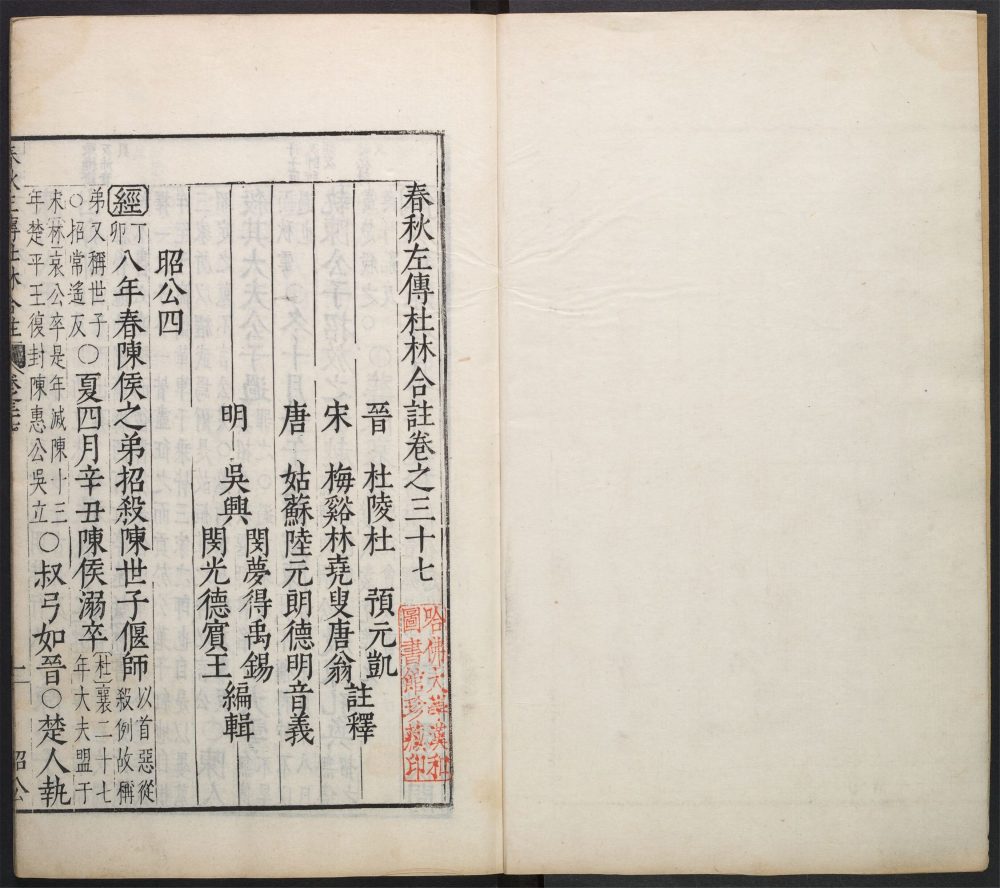 春秋左傳杜林合註卷之三十七
晉　杜陵杜　預元凱
宋　梅谿林堯叟唐翁
註釋
唐　姑蘇陸元朗德明音義
明　吳興
閔夢得禹錫
閔光德賓王
編輯
昭公四
經丁卯八年春陳侯之弟招殺陳世子偃師以首惡從殺例故稱
弟又稱世子○招常遙反○夏四月辛丑陳侯溺卒杜襄二十七年大夫盟于
宋林哀公卒是年滅陳十三年楚平王復封陳惠公吳立○叔弓如晉○楚人執
昭公
哈佛大學漢和
圖書館珍藏印